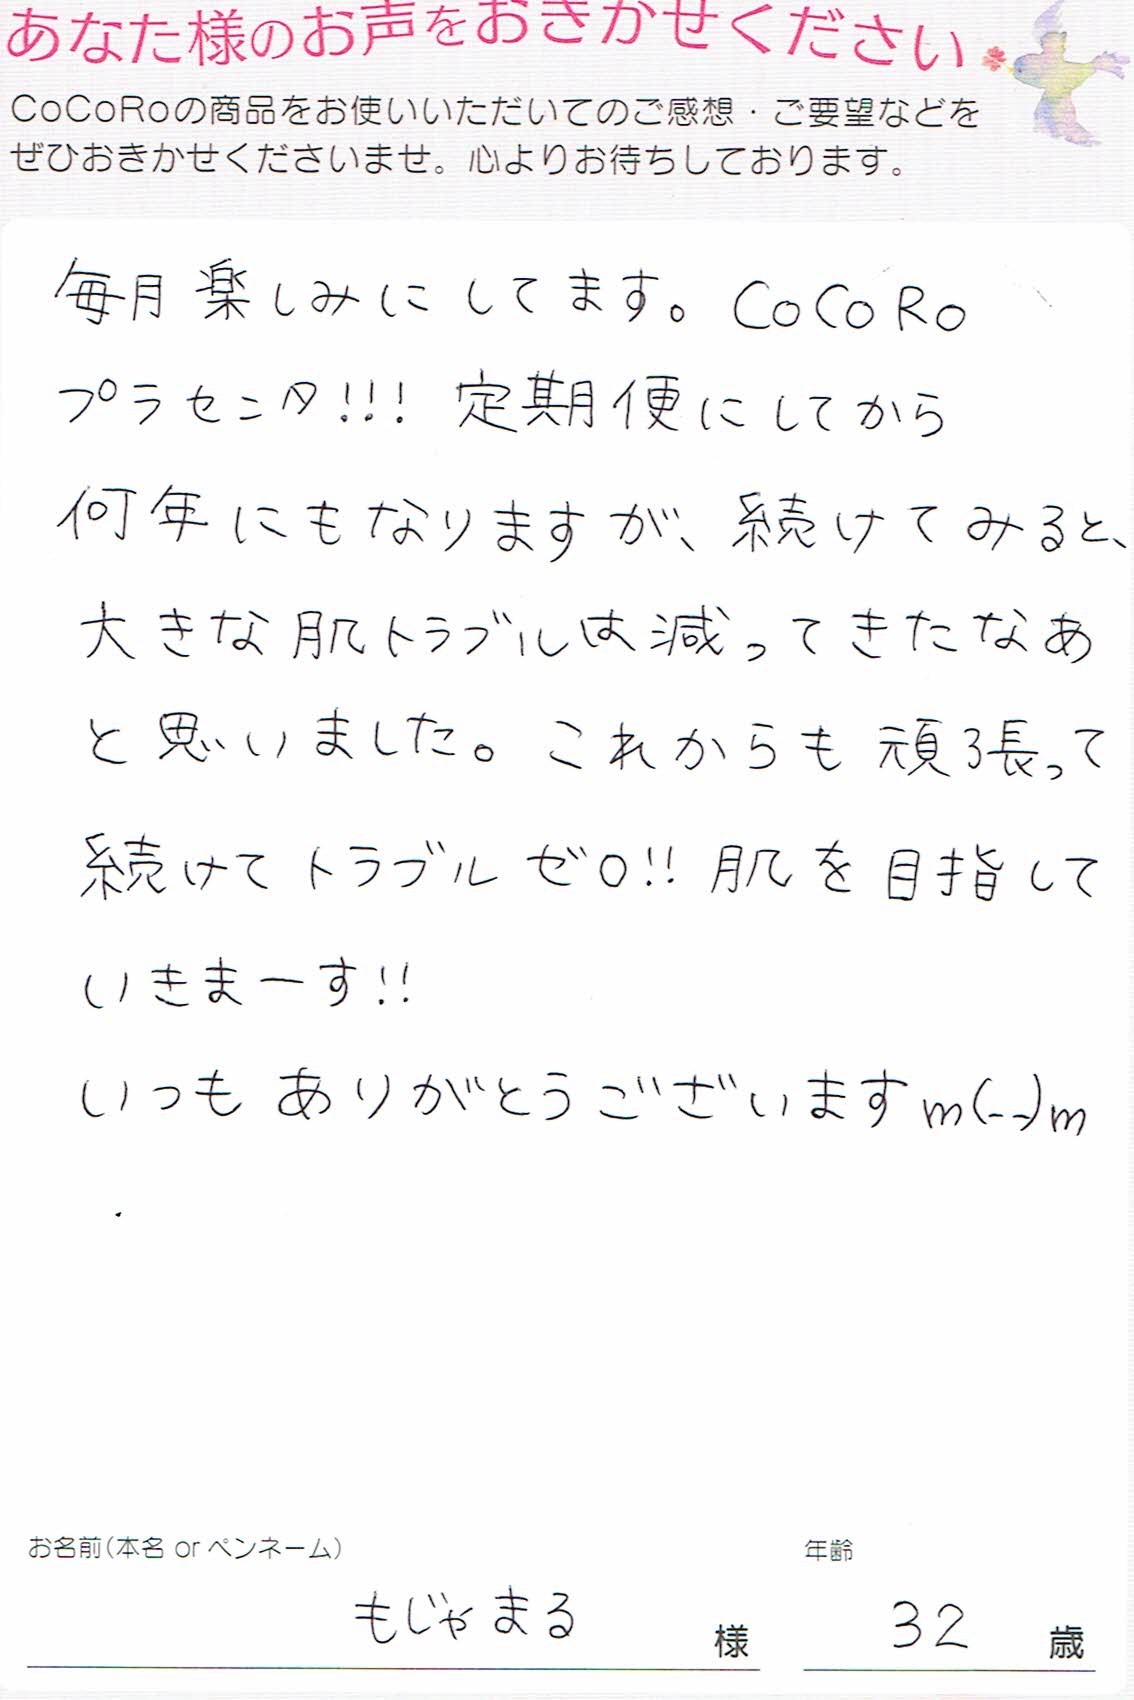 あなた様のお声をおきかせください
CoCoRoの商品をお使いいただいてのご感想・ご要望などを
ぜひおきかせくださいませ。心よりお待ちしております。
毎月楽しみにしてます。CoCoRo
プラセンタ!!! 定期便にしてから
何年にもなりますが、続けてみると、
大きな肌トラブルは減ってきたなあ
と思いました。これからも頑張って
続けてトラブルゼロ!! 肌を目指して
いきまーす!!
いつもありがとうございますm(--)m
お名前(本名 or ペンネーム) 年齢
もじゃまる 様 32 歳